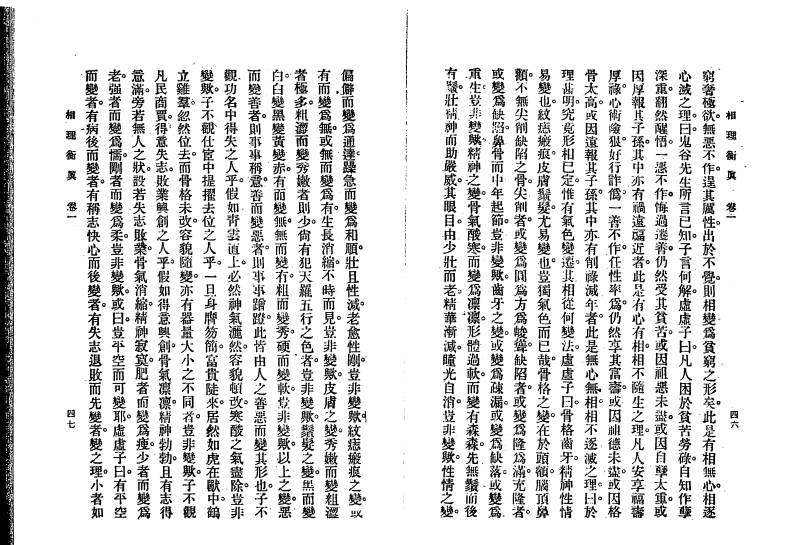 相理衡眞　卷一
四六
窮奢極欲無惡不作逞其厲性出於不覺則相變爲貧窮之形矣此是有相無心相逐
心滅之理曰鬼谷先生所言已知子言何解虛虛子曰凡人困於貧苦勞碌自知作孽
深重翻然醒悟一惡不作悔過遷善仍然受其貧苦或因祖惡未盡或因自孽太重或
因厚報其子孫其中亦有禍遠福近者此是有心有相相不隨生之理凡人安享福壽
厚祿心術險狠好行詐僞一善不作任性率爲仍然享其富壽或因祖德未盡或因格
骨太高或因遠報其子孫其中亦有削祿減年者此是無心無相相不逐滅之理曰於
理甚明究竟形相已定惟有氣色變遷其相從何變法虛虛子曰骨格齒牙精神性情
易變也紋痣瘢痕皮膚鬚髮尤易變也豈獨氣色而已哉骨格之變在於頭額腦頂鼻
顴不無尖削缺陷之骨尖削者或變爲圓爲方爲峻聳缺陷者或變爲隆爲滿充隆者
或變爲缺陷鼻骨而中年起節豈非變歟齒牙之變或變爲疎漏或變爲缺落或變爲
重生豈非變歟精神之變骨氣酸寒而變爲凜凜形體過軟而變有森森先無鬚而後
有鬚壯精神而助嚴威其眼目由少壯而老精華漸減瞳光自消豈非變歟性情之變
偏僻而變爲通達躁急而變爲和順壯且性減老愈性剛豈非變歟紋痣瘢痕之變或
有而變爲無或無而變爲有生長消縮不時而見豈非變歟皮膚之變秀嫩而變粗澀
者極多粗澀而變秀嫩者則少尙有犯天羅五行之色者豈非變歟鬚髮之變黑而變
白白變黑變黃變亦有而變無無而變有粗而變秀硬而變軟豈非變歟以上之變惡
而變善者則事事稱意善而變惡者則事事蹭蹬此皆由人之善惡而變其形也子不
觀功名中得失之人乎假如靑雲直上必然神氣灑然容貌頓改寒酸之氣盡除豈非
變歟子不觀仕宦中提擢去位之人乎一旦身膺笏簡富貴陡來居然如虎在獸中鶴
立雞羣忽然位去而骨格未改容貌隨變亦有器量大小之不同者豈非變歟子不觀
凡民商賈得意失志敗業興創之人乎假如得意興創骨氣凜凜精神勃勃且有志得
意滿旁若無人之狀設若失志敗業骨氣消縮精神寂寞肥者而變爲瘦少者而變爲
老强者而變爲懦剛者而變爲柔豈非變歟或曰豈平空而可變耶虛虛子曰有平空
而變者有病後而變者有稱志快心而後變者有失志退敗而先變者變之理小者如
相理衡眞　卷一
四七